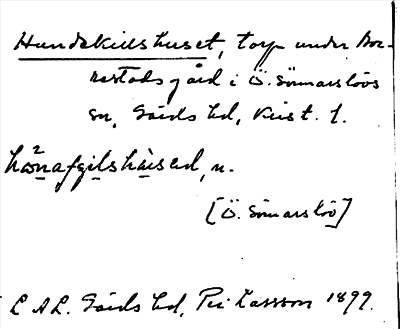 Hundskullshuset, torp under Bor-
restads gård i Ö. Sönnarslövs
sn, Gärds hd, Krist. l.
[Ö. Sönnarslöv]
L A L. Gärds hd, Per Larsson 1899.